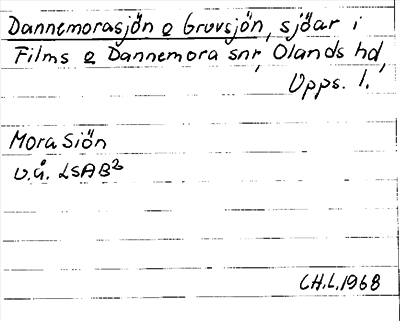 Dannemorasjön o Gruvsjön, sjöar i
Films o Dannemora snr, Olands hd,
Upps. l.
Mora Siön
u.å. LSAB2
CH.L.1968